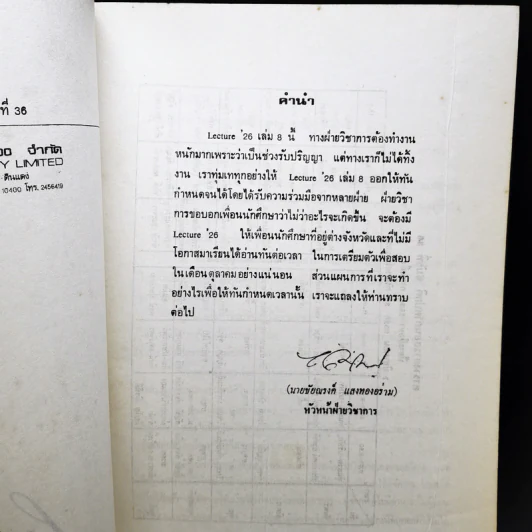 ที่ 36
จำกัด
Y LIMITED
ดินแดง
10400 โทร. 2456419
คำนำ
Lecture '26 เล่ม 8 นี้ ทางฝ่ายวิชาการต้องทำงาน
หนักมากเพราะว่าเป็นช่วงรับปริญญา แต่ทางเราก็ไม่ได้ทิ้ง
งาน เราทุ่มเททุกอย่างให้ Lecture '26 เล่ม 8 ออกให้ทัน
กำหนดจนได้โดยได้รับความร่วมมือจากหลายฝ่าย ฝ่ายวิชา
การขอบอกเพื่อนนักศึกษาว่าไม่ว่าอะไรจะเกิดขึ้น จะต้องมี
Lecture '26 ให้เพื่อนนักศึกษาที่อยู่ต่างจังหวัดและที่ไม่มี
โอกาสมาเรียนได้อ่านทันต่อเวลา ในการเตรียมตัวเพื่อสอบ
ในเดือนตุลาคมอย่างแน่นอน ส่วนแผนการที่เราจะทำ
อย่างไรเพื่อให้ทันกำหนดเวลานั้น เราจะแถลงให้ท่านทราบ
ต่อไป
(นายชัยณรงค์ แสงทองอร่าม)
หัวหน้าฝ่ายวิชาการ